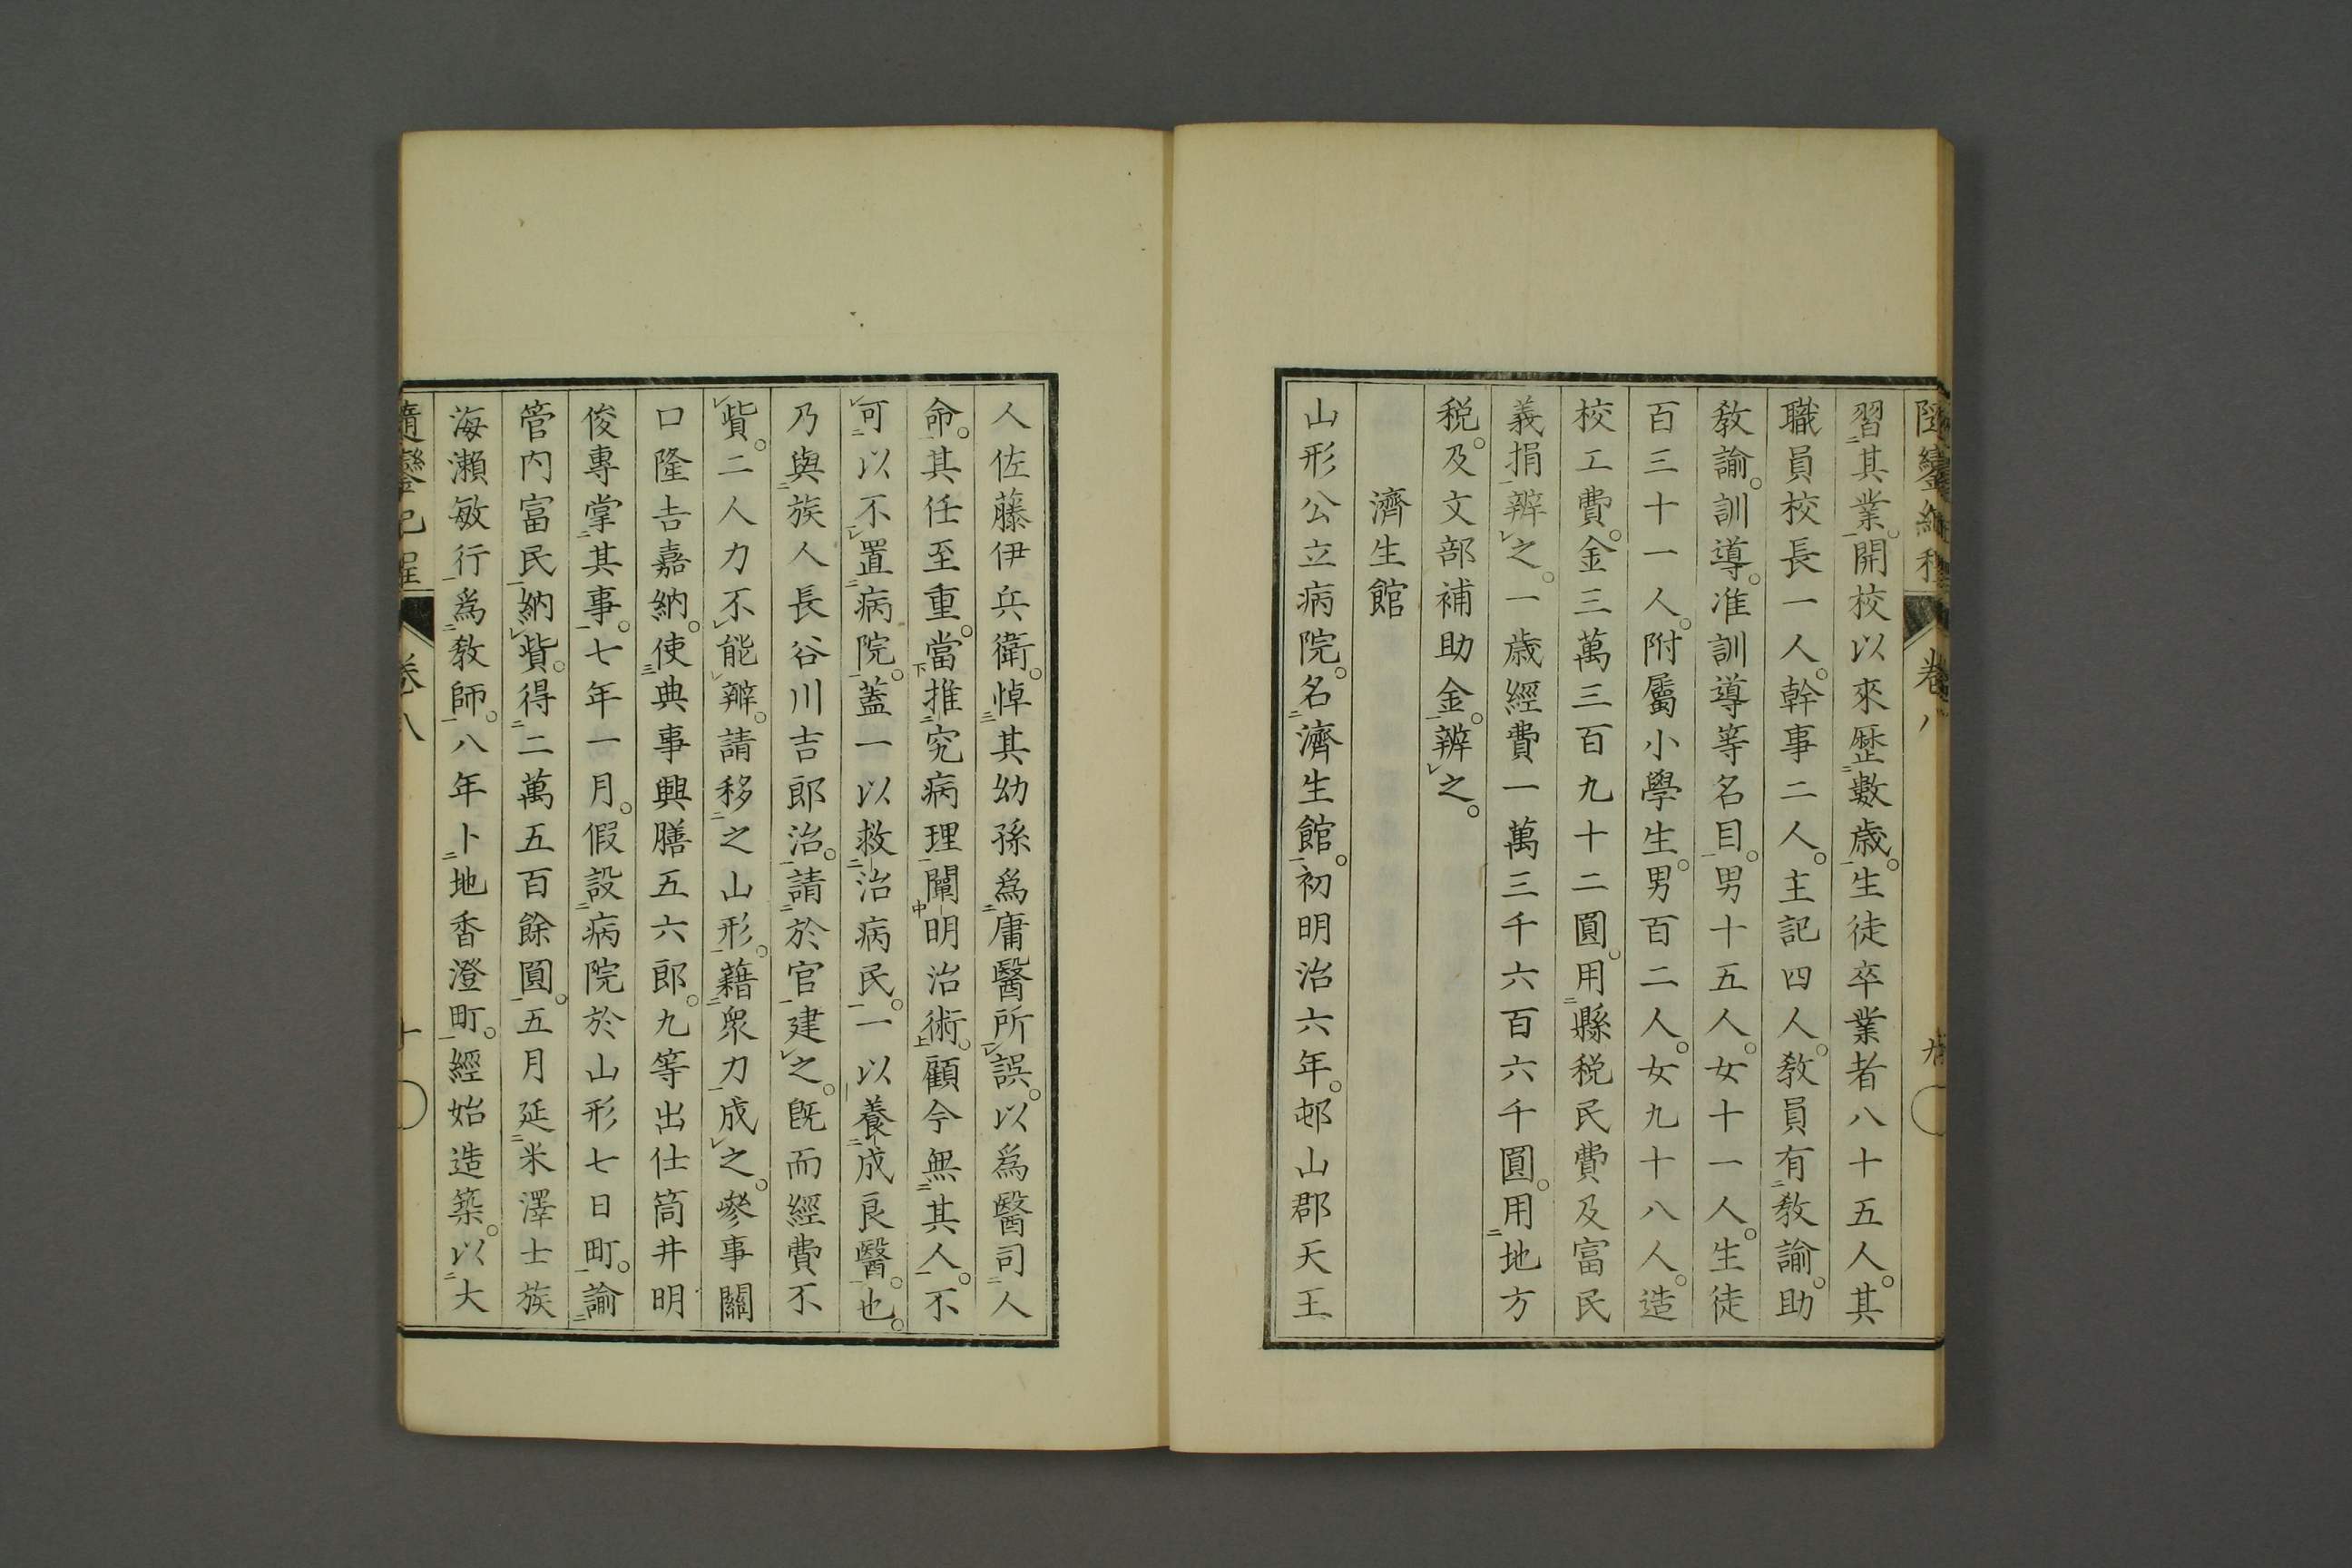 習其業。開校以來歴數歳。生徒卒業者八十五人。其
職員校長一人。幹事二人。主記四人。敎員有敎諭。助
敎諭。訓導。准訓導等名目。男十五人。女十一人。生徒
百三十一人。附屬小學生。男百二人。女九十八人。造
校工費。金三萬三百九十二圓。用縣税民費及富民
義捐辨之。一歳經費一萬三千六百六千圓。用地方
税。及文部補助金。辨之。
濟生館
山形公立病院。名濟生館。初明治六年。邨山郡天王
人佐藤伊兵衛。悼其幼孫爲庸醫所誤。以爲醫司人
命。其任至重。當推究病理闡明治術。顧今無其人。不
可以不置病院。蓋一以救治病民。一以養成良醫。也。
乃與族人長谷川吉郎治。請於官建之。既而經費不
貲。二人力不能辨。請移之山形。藉衆力成之。參事關
口隆吉嘉納。使典事興膳五六郎。九等出仕筒井明
俊專掌其事。七年一月。假設病院於山形七日町。諭
管内富民納貲。得二萬五百餘圓。五月延米澤士族
海瀬敏行爲敎師。八年卜地香澄町。經始造築。以大
隨鑾紀程 卷八 十